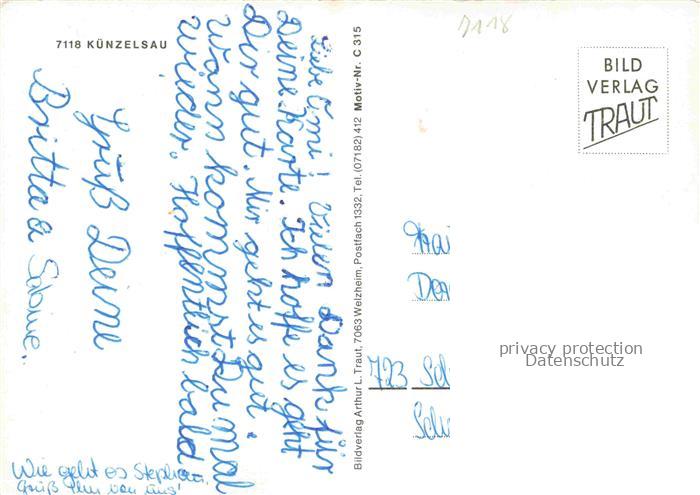 7118 KÜNZELSAU
7118
Liebe Omi! Vielen Dank für
Deine Karte. Ich hoffe es geht
Dir gut. Mir geht es gut.
Wann kommst Du mal
wieder. Hoffentlich bald!
Gruß Deine
Britta & Sabine.
Wie geht es Stephan.
Grüß ihn von uns!
Bildverlag Arthur L. Traut, 7063 Welzheim, Postfach 1332, Tel. (07182) 412 Motiv-Nr. C 315
BILD
VERLAG
TRAUT
723 Sch
privacy protection
Datenschutz